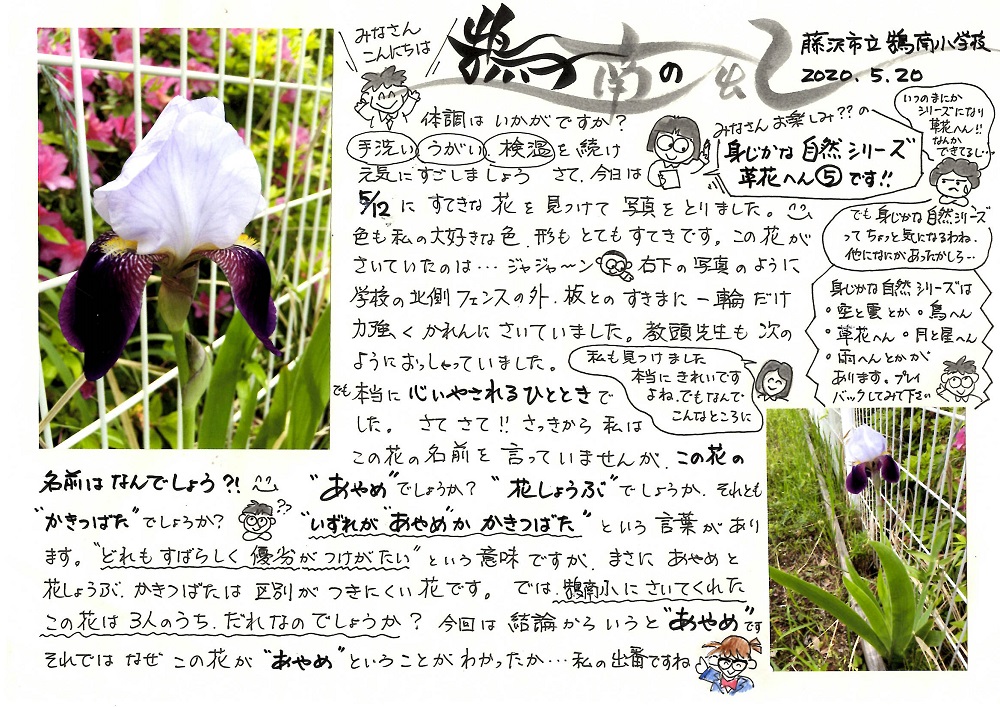 みなさん
こんにちは
鵠南の虹
藤沢市立 鵠南小学校
2020.5.20
体調は いかがですか?
手洗い うがい、検温を続け
元気にすごしましょう さて、今日は
みなさんお楽しみ??の
身じかな自然シリーズ
草花へん⑤です!!
いつのまにか
シリーズになり
草花へん!!
なんか
できてるし…
5/12 に すてきな 花 を 見つけて 写真を とりました。
色も私の大好きな色、形も とても すてきです。この花が
さいていたのは… ジャジャ〜ン 右下の写真のように
学校の北側フェンスの外、板とのすきまに 一輪だけ
力強く かれんに さいていました。教頭先生も 次の
ようにおっしゃっていました。
でも身じかな自然シリーズ
って ちょっと気になるわね、
他になにがあったかしら…
身じかな自然シリーズは
・空と雲とか ・鳥へん
・草花へん ・月と星へん
・雨へんとかが
あります。プレイ
バックしてみて下さい
私も見つけました
本当にきれいです
よね、でもなんで
こんなところに
でも本当に心いやされるひとときで
した。 さて さて!! さっきから 私は
この花の名前を言っていませんが、この花の
名前は なんでしょう?! "あやめ"でしょうか? "花しょうぶ"でしょうか、それとも
"かきつばた"でしょうか? "いずれが"あやめ"か かきつばた" という 言葉があり
ます。"どれもすばらしく 優劣がつけがたい"という意味ですが、まさに あやめと
花しょうぶ、かきつばたは 区別が つきにくい 花です。 では、鵠南小にさいてくれた
この花は 3人のうち、だれなのでしょうか? 今回は 結論から いうと "あやめ"です
それでは なぜ この花が "あやめ"ということが わかったか… 私の出番ですね